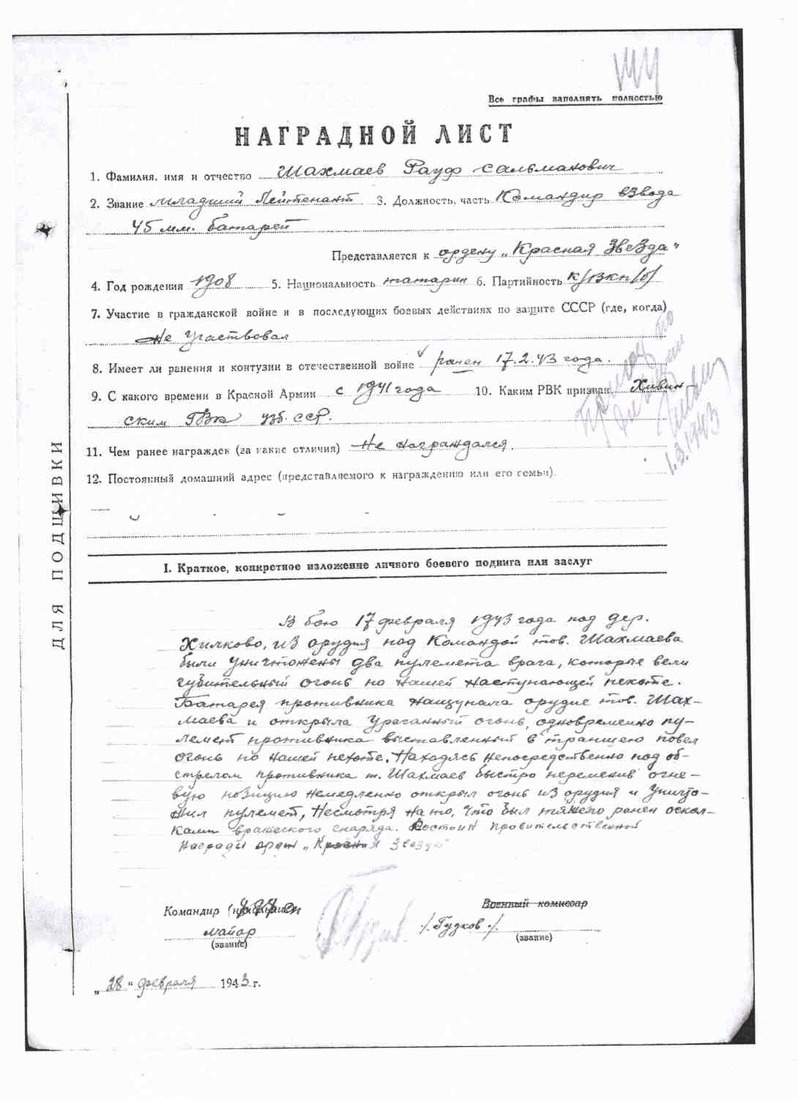 Все графы заполнять полностью
НАГРАДНОЙ ЛИСТ
1. Фамилия, имя и отчество Шахмаев Рауф Сальманович
2. Звание младший Лейтенант 3. Должность, часть Командир взвода
45 мм. батареи
Представляется к ордену „Красная Звезда"
4. Год рождения 1908 5. Национальность татарин 6. Партийность к/ВКП/б/
7. Участие в гражданской войне и в последующих боевых действиях по защите СССР (где, когда)
Не участвовал
8. Имеет ли ранения и контузии в отечественной войне ранен 17.2.43 года.
9. С какого времени в Красной Армии с 1941 года 10. Каким РВК призван Хивин-
ским РВК Узб. ССР.
11. Чем ранее награжден (за какие отличия) Не награждался.
12. Постоянный домашний адрес (представляемого к награждению или его семьи)
1.3.1943
ДЛЯ ПОДШИВКИ
I. Краткое, конкретное изложение личного боевого подвига или заслуг
В бою 17 февраля 1943 года под дер.
Хилково, из орудия под Командой тов. Шахмаева
были уничтожены два пулемета врага, которые вели
губительный огонь по нашей наступающей пехоте.
Батарея противника нащупала орудие тов. Шах-
маева и открыла ураганный огонь, одновременно пу-
лемет противника выставленный в траншею повел
огонь по нашей пехоте. Находясь непосредственно под об-
стрелом противника т. Шахмаев быстро переменив огне-
вую позицию немедленно открыл огонь из орудия и уничто-
жил пулемет, Несмотря на то, что был тяжело ранен оскол-
ками вражеского снаряда. Достоин правительственной
награды орден „Красная Звезда"
Командир
Военный комиссар
майор
/Гудков/
(звание)
(звание)
„28" февраля 1943 г.